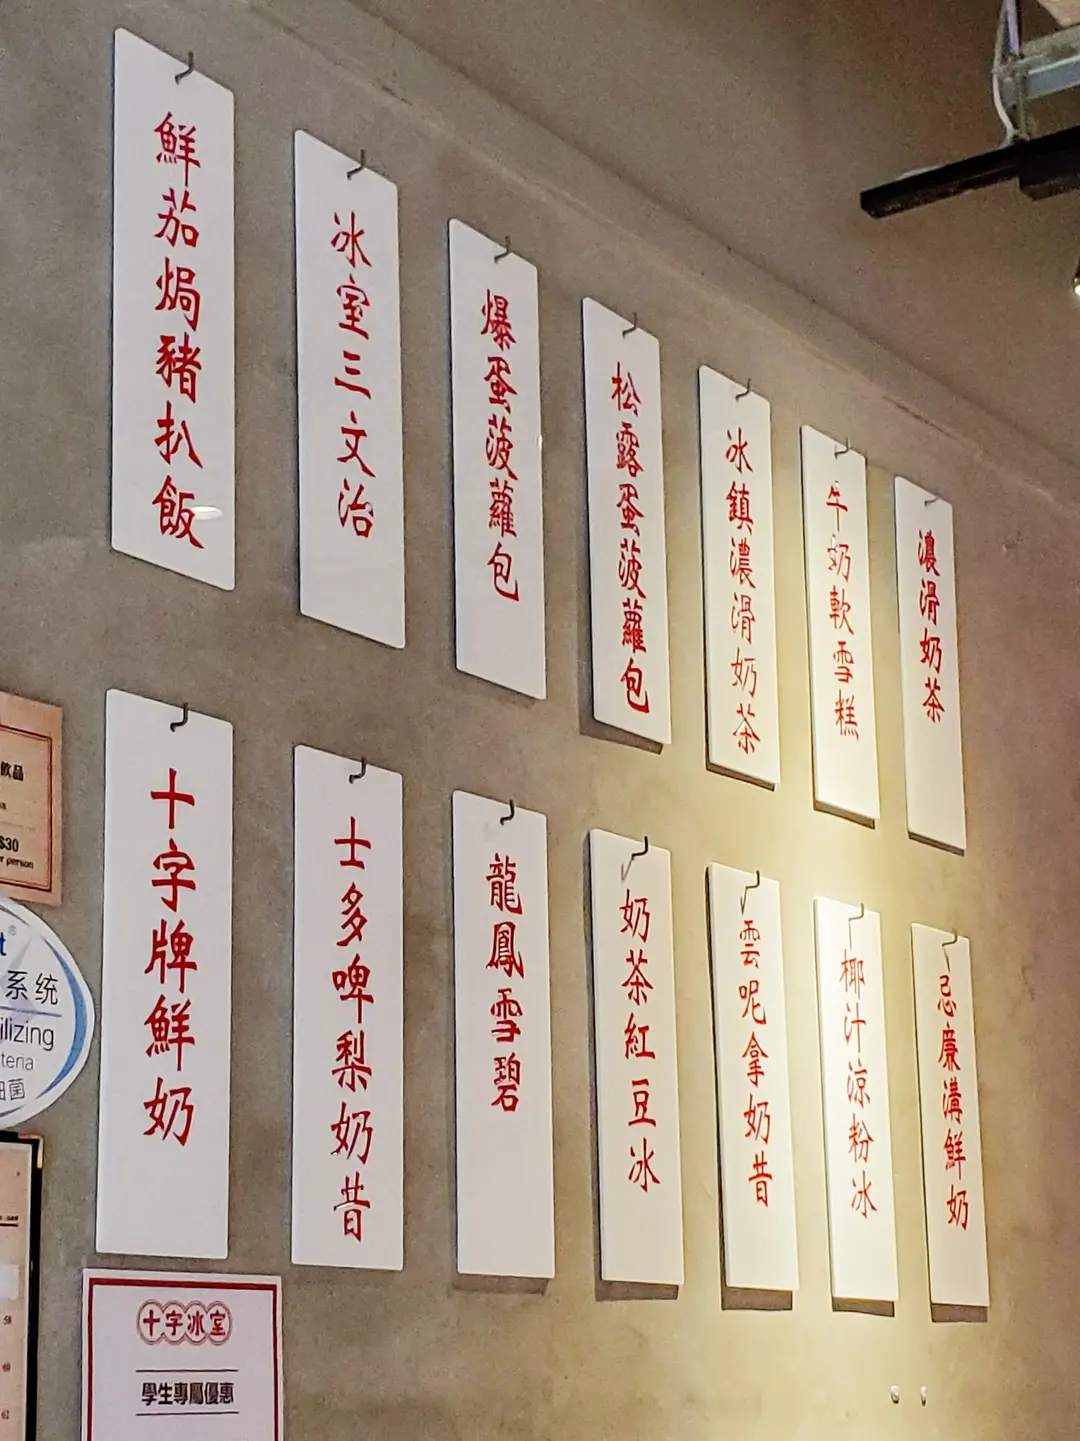 鮮茄焗豬扒飯
冰室三文治
爆蛋菠蘿包
松露蛋菠蘿包
冰鎮濃滑奶茶
牛奶軟雪糕
濃滑奶茶
十字牌鮮奶
士多啤梨奶昔
龍鳳雪碧
奶茶紅豆冰
雲呢拿奶昔
椰汁涼粉冰
忌廉溝鮮奶
飲品
$30
person
系统
ilizing
teria
菌
58
60
62
十字冰室
學生專屬優惠